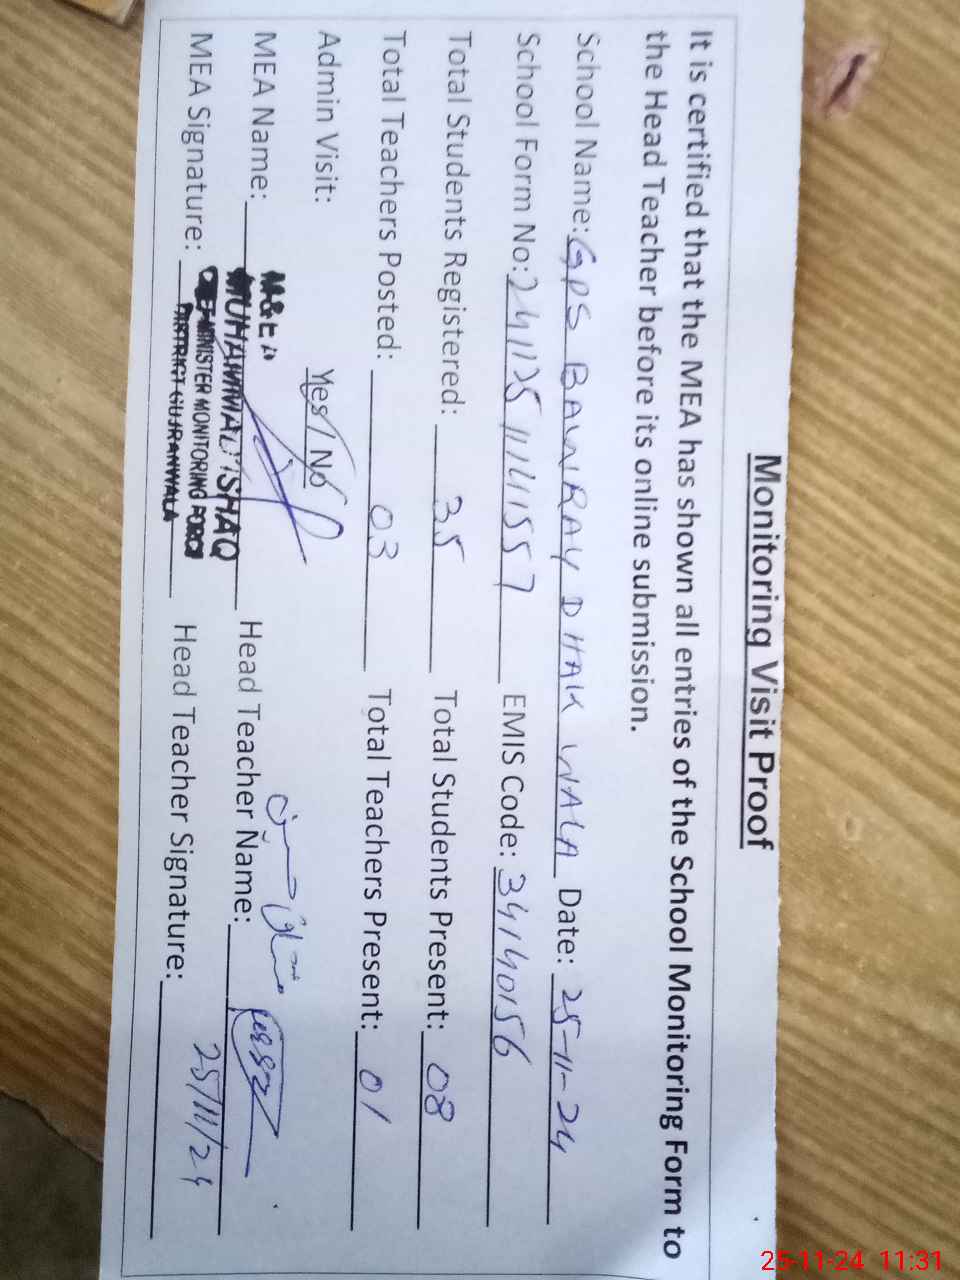 Monitoring Visit Proof
It is certified that the MEA has shown all entries of the School Monitoring Form to
the Head Teacher before its online submission.
School Name: GPS BAWRAY DHAK WALA Date: 25-11-24
School Form No: 24112511141557 EMIS Code: 34140156
Total Students Registered: 35 Total Students Present: 08
Total Teachers Posted: 03 Total Teachers Present: 01
Admin Visit: Yes/No
MEA Name: MUHAMMAD ISHAQ Head Teacher Name:
MEA Signature: Head Teacher Signature:
M&EA
CHIEF MINISTER MONITORING FORCE
DISTRICT GUJRANWALA
25/11/24
25-11-24 11:31